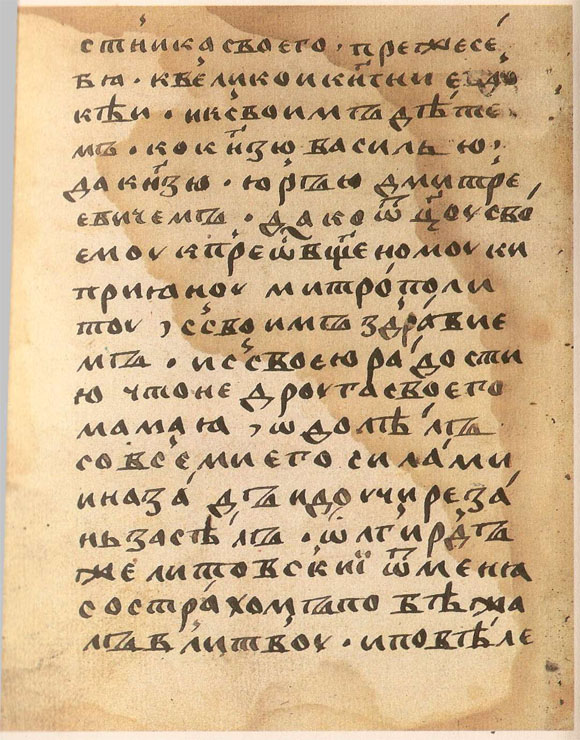 стн҃ика своего · преже себ
бѧ · к великои кн҃гни е
кѣи · и к своимъ дѣте
мъ · ко кн҃зю василью,
да кн҃зю · юрью дмитре
евичемъ · да ко ѿцоу сво
емоу к преѡсвще҃номоу ки
прияноу митрополи
тоу , с своимъ здравие
мъ · и с своею радости
ю что не дроуга своего
мамаꙗ , ѡдолѣлъ
со всеми его силами
и назадъ идоучи реза
нь засѣлъ · ѡлгирдъ
же литовскии ѿ менꙗ
со страхомъ побѣжа
лъ в литвоу · и повѣле